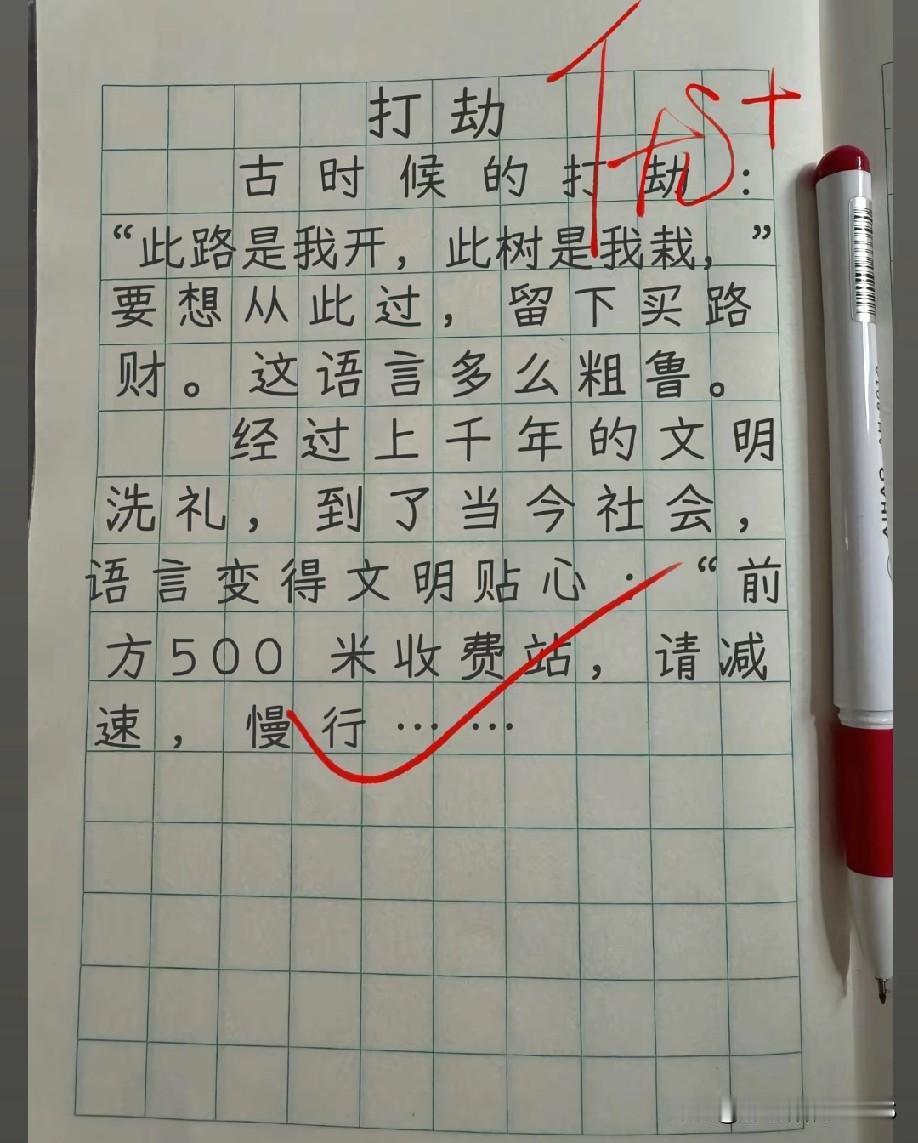 打劫
古时候的打劫：
“此路是我开，此树是我栽，”
要想从此过，留下买路
财。这语言多么粗鲁。
经过上千年的文明
洗礼，到了当今社会，
语言变得文明贴心：“前
方500米收费站，请减
速，慢行……